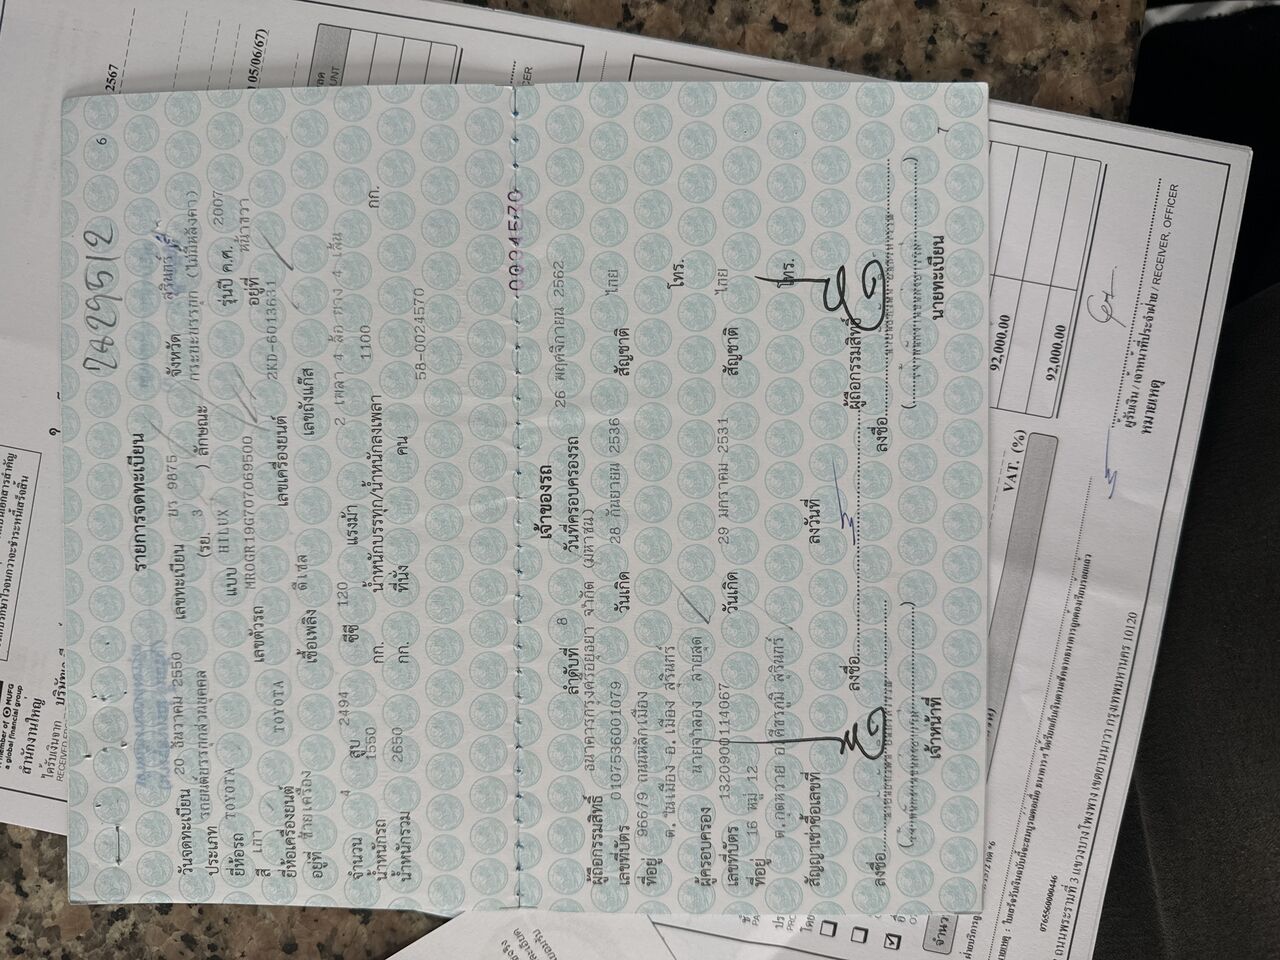 6
2429512
รายการจดทะเบียน
วันจดทะเบียน 20 ธันวาคม 2550 เลขทะเบียน 9875 จังหวัด สุรินทร์
ประเภท รถยนต์บรรทุกส่วนบุคคล (รย. 3 ) ลักษณะ กระบะบรรทุก (ไม่มีหลังคา)
ยี่ห้อรถ TOYOTA แบบ HILUX รุ่นปี ค.ศ. 2007
สี เทา เลขตัวรถ MROGR19G707069500 อยู่ที่ หน้าขวา
ยี่ห้อเครื่องยนต์ TOYOTA เลขเครื่องยนต์ 2KD-6013631
อยู่ที่ ซ้ายเครื่อง เชื้อเพลิง ดีเซล เลขถังแก๊ส
จำนวน 4 สูบ 2494 ซีซี 120 แรงม้า 2 เพลา 4 ล้อ ยาง 4 เส้น
น้ำหนักรถ 1550 กก. น้ำหนักบรรทุก/น้ำหนักลงเพลา 1100 กก.
น้ำหนักรวม 2650 กก. ที่นั่ง คน
58-0024570
0024570
เจ้าของรถ
ลำดับที่ 8 วันที่ครอบครองรถ 26 พฤศจิกายน 2562
ผู้ถือกรรมสิทธิ์ ธนาคารกรุงศรีอยุธยา จำกัด (มหาชน)
เลขที่บัตร 0107536001079 วันเกิด 28 กันยายน 2536 สัญชาติ ไทย
ที่อยู่ 966/9 ถนนหลักเมือง
ต.ในเมือง อ.เมือง สุรินทร์ โทร.
ผู้ครอบครอง นายจำลอง สายสุด
เลขที่บัตร 1320900114067 วันเกิด 29 มกราคม 2531 สัญชาติ ไทย
ที่อยู่ 16 หมู่ 12
ต.กุดหวาย อ.ศีขรภูมิ สุรินทร์ โทร.
สัญญาเช่าซื้อเลขที่ ลงวันที่
ลงชื่อ ผู้ถือกรรมสิทธิ์
ลงชื่อ ลงชื่อ
เจ้าหน้าที่ นายทะเบียน
7
2567
05/06/67)
MUFG
a global financial group
สำนักงานใหญ่
ได้รับเงินจาก
VAT. (%)
92,000.00
92,000.00
ผู้รับเงิน / เจ้าหน้าที่ประจำฝ่าย / RECEIVER, OFFICER
หมายเหตุ
0765560000446
ถนนพระรามที่ 3 แขวงบางโพงพาง เขตยานนาวา กรุงเทพมหานคร 10120